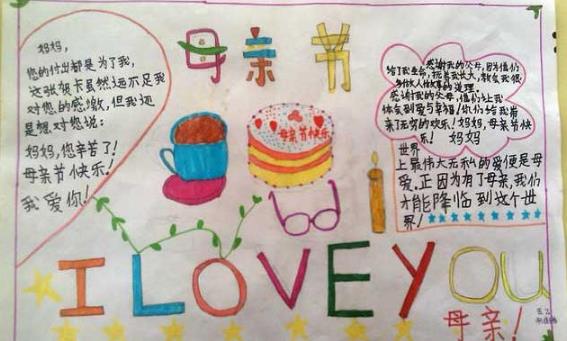 母亲节
妈妈，
您的付出都是为了我，
这张贺卡虽然远不足我
对您的感激，但我还
是想对您说：
妈妈，您辛苦了！
母亲节快乐！
我爱你！
母亲节快乐
感谢我的父母，因为他们
给了我生命，抚养我长大，教会我很
多做人做事的道理。
感谢我的父母，他们让我
体会到爱与幸福！你们给我带
来了无穷的欢乐！妈妈，母亲节快
乐！ 妈妈
世界
上最伟大无私的爱便是母
爱。正因为有了母亲，我们
才能降临到这个世
界！
I LOVE YOU
母亲！